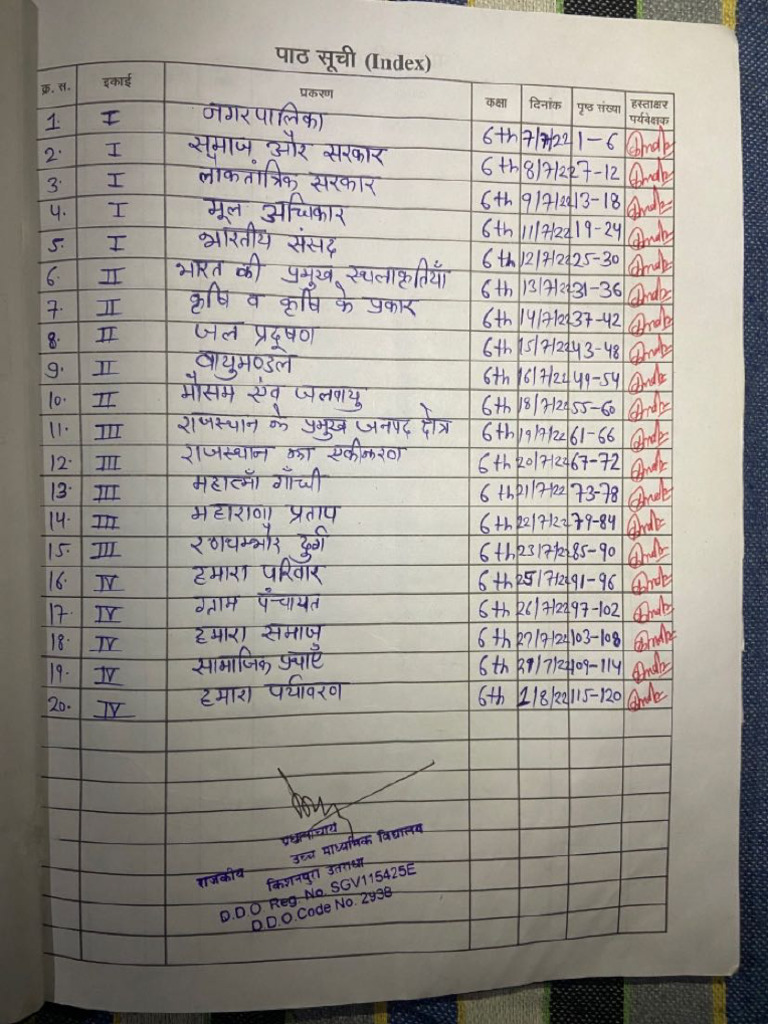 पाठ सूची (Index)
क्र. स. इकाई प्रकरण कक्षा दिनांक पृष्ठ संख्या हस्ताक्षर पर्यवेक्षक
1. I नगरपालिका 6th 7/7/22 1-6
2. I समाज और सरकार 6th 8/7/22 7-12
3. I लोकतांत्रिक सरकार 6th 9/7/22 13-18
4. I मूल अधिकार 6th 11/7/22 19-24
5. I भारतीय संसद 6th 12/7/22 25-30
6. II भारत की प्रमुख स्थलाकृतियाँ 6th 13/7/22 31-36
7. II कृषि व कृषि के प्रकार 6th 14/7/22 37-42
8. II जल प्रदूषण 6th 15/7/22 43-48
9. II वायुमण्डल 6th 16/7/22 49-54
10. II मौसम एंव जलवायु 6th 18/7/22 55-60
11. III राजस्थान के प्रमुख जनपद क्षेत्र 6th 19/7/22 61-66
12. III राजस्थान का एकीकरण 6th 20/7/22 67-72
13. III महात्माँ गाँधी 6th 21/7/22 73-78
14. III महाराणा प्रताप 6th 22/7/22 79-84
15. III रणथम्भौर दुर्ग 6th 23/7/22 85-90
16. IV हमारा परिवार 6th 25/7/22 91-96
17. IV ग्राम पंचायत 6th 26/7/22 97-102
18. IV हमारा समाज 6th 27/7/22 103-108
19. IV सामाजिक प्रथाएँ 6th /7/22 109-114
20. IV हमारा पर्यावरण 6th 1/8/22 115-120
प्रधानाचार्य
राजकीय उच्च माध्यमिक विद्यालय
किशनपुरा
D.D.O Reg. No. SGV115425E
D.D.O. Code No. 2998